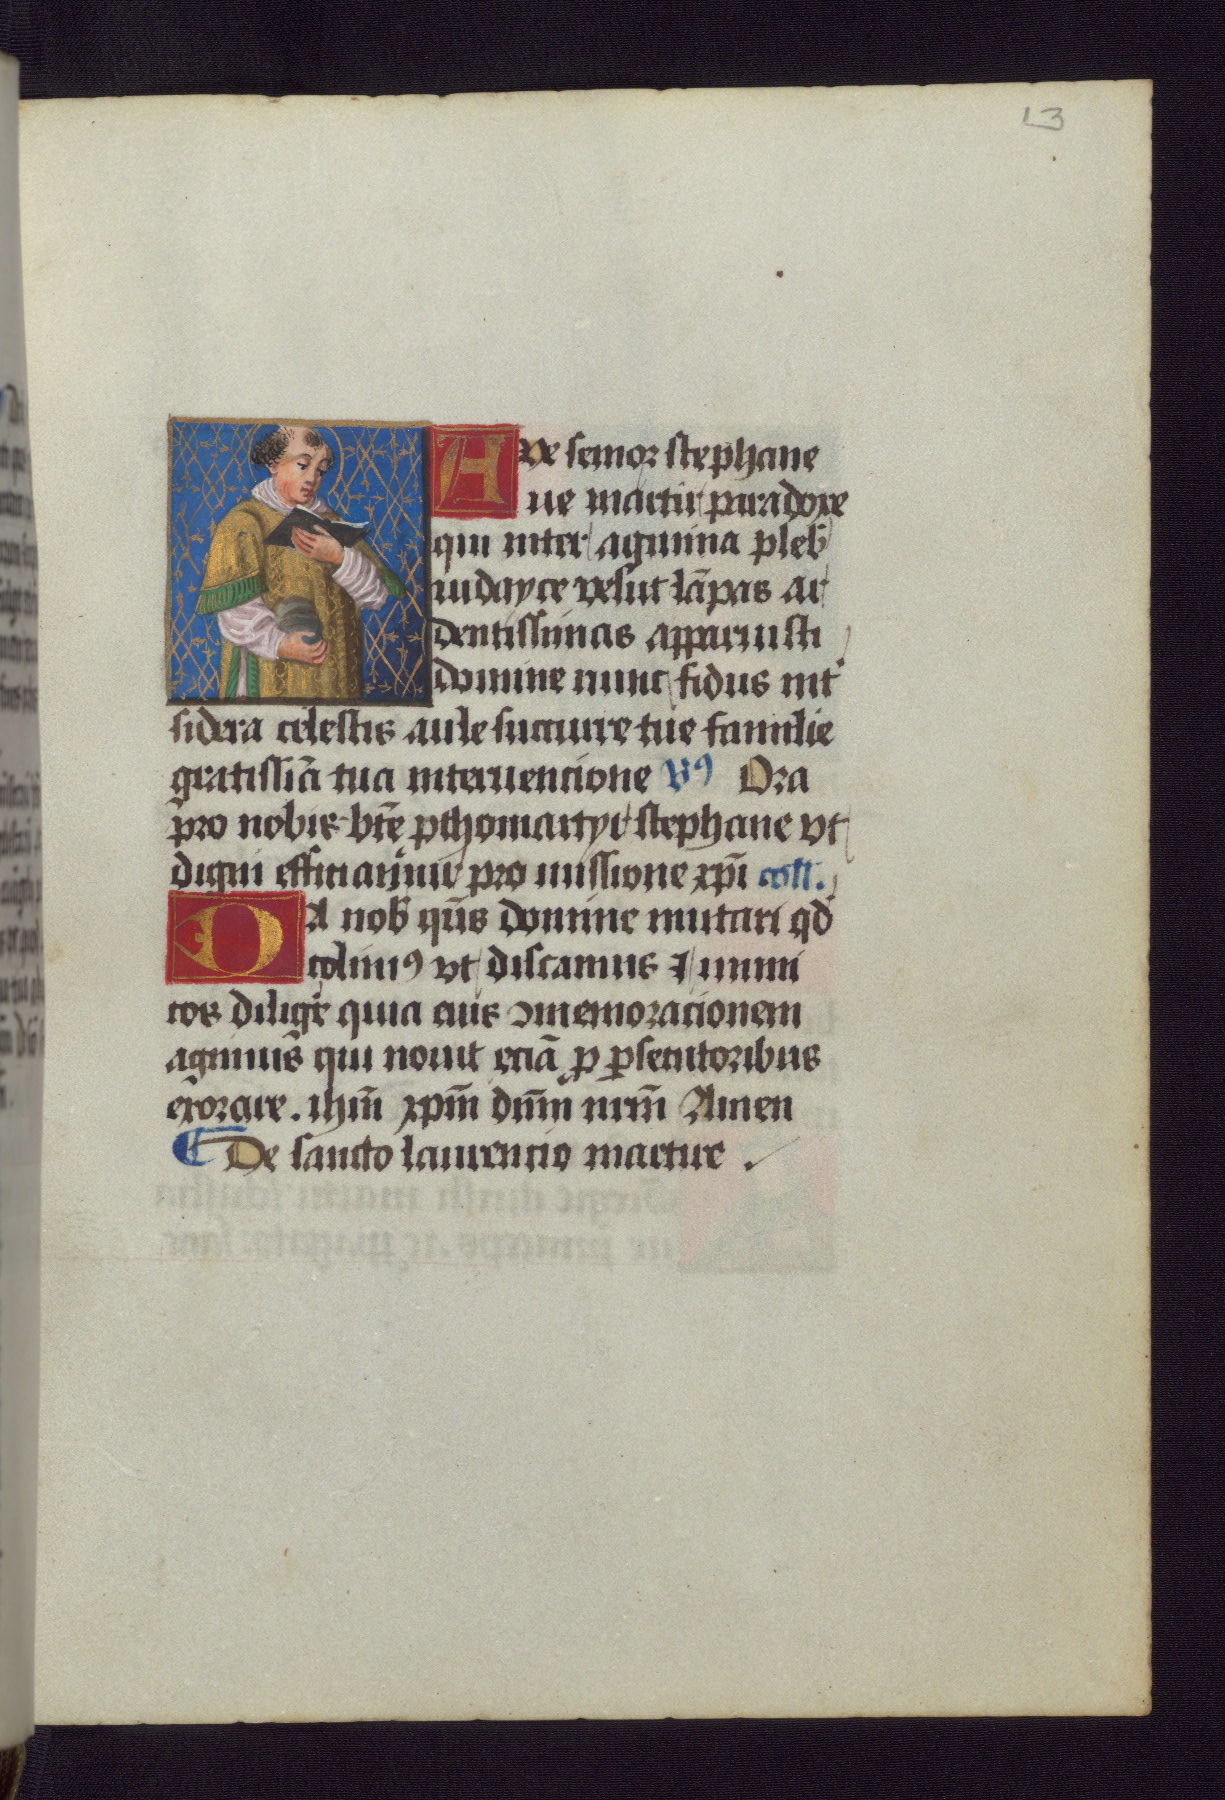 13
Aue senior stephane
ue martir paradoxe
qui inter agmina pleb
iudayce velut lāpas ar
dentissimas apparuisti
domine nunc fidus int
sidera celestis aule succurre tue familie
gratissīa tua interuencione v⁹ Ora
pro nobis btē pthomartyr stephane vt
digni efficiamur pro missione xpī coll.
DA nob qs̄ domine imitari qd
colim⁹ vt discamus ⁊ inimi
cos diligē quia eius ↄmemoracionem
agimus qui nouit eciā ꝓ ꝑsecutoribus
exorare. ihm̄ xpm̄ dnm̄ nrm̄ Amen
¶ De sancto laurencio martire .